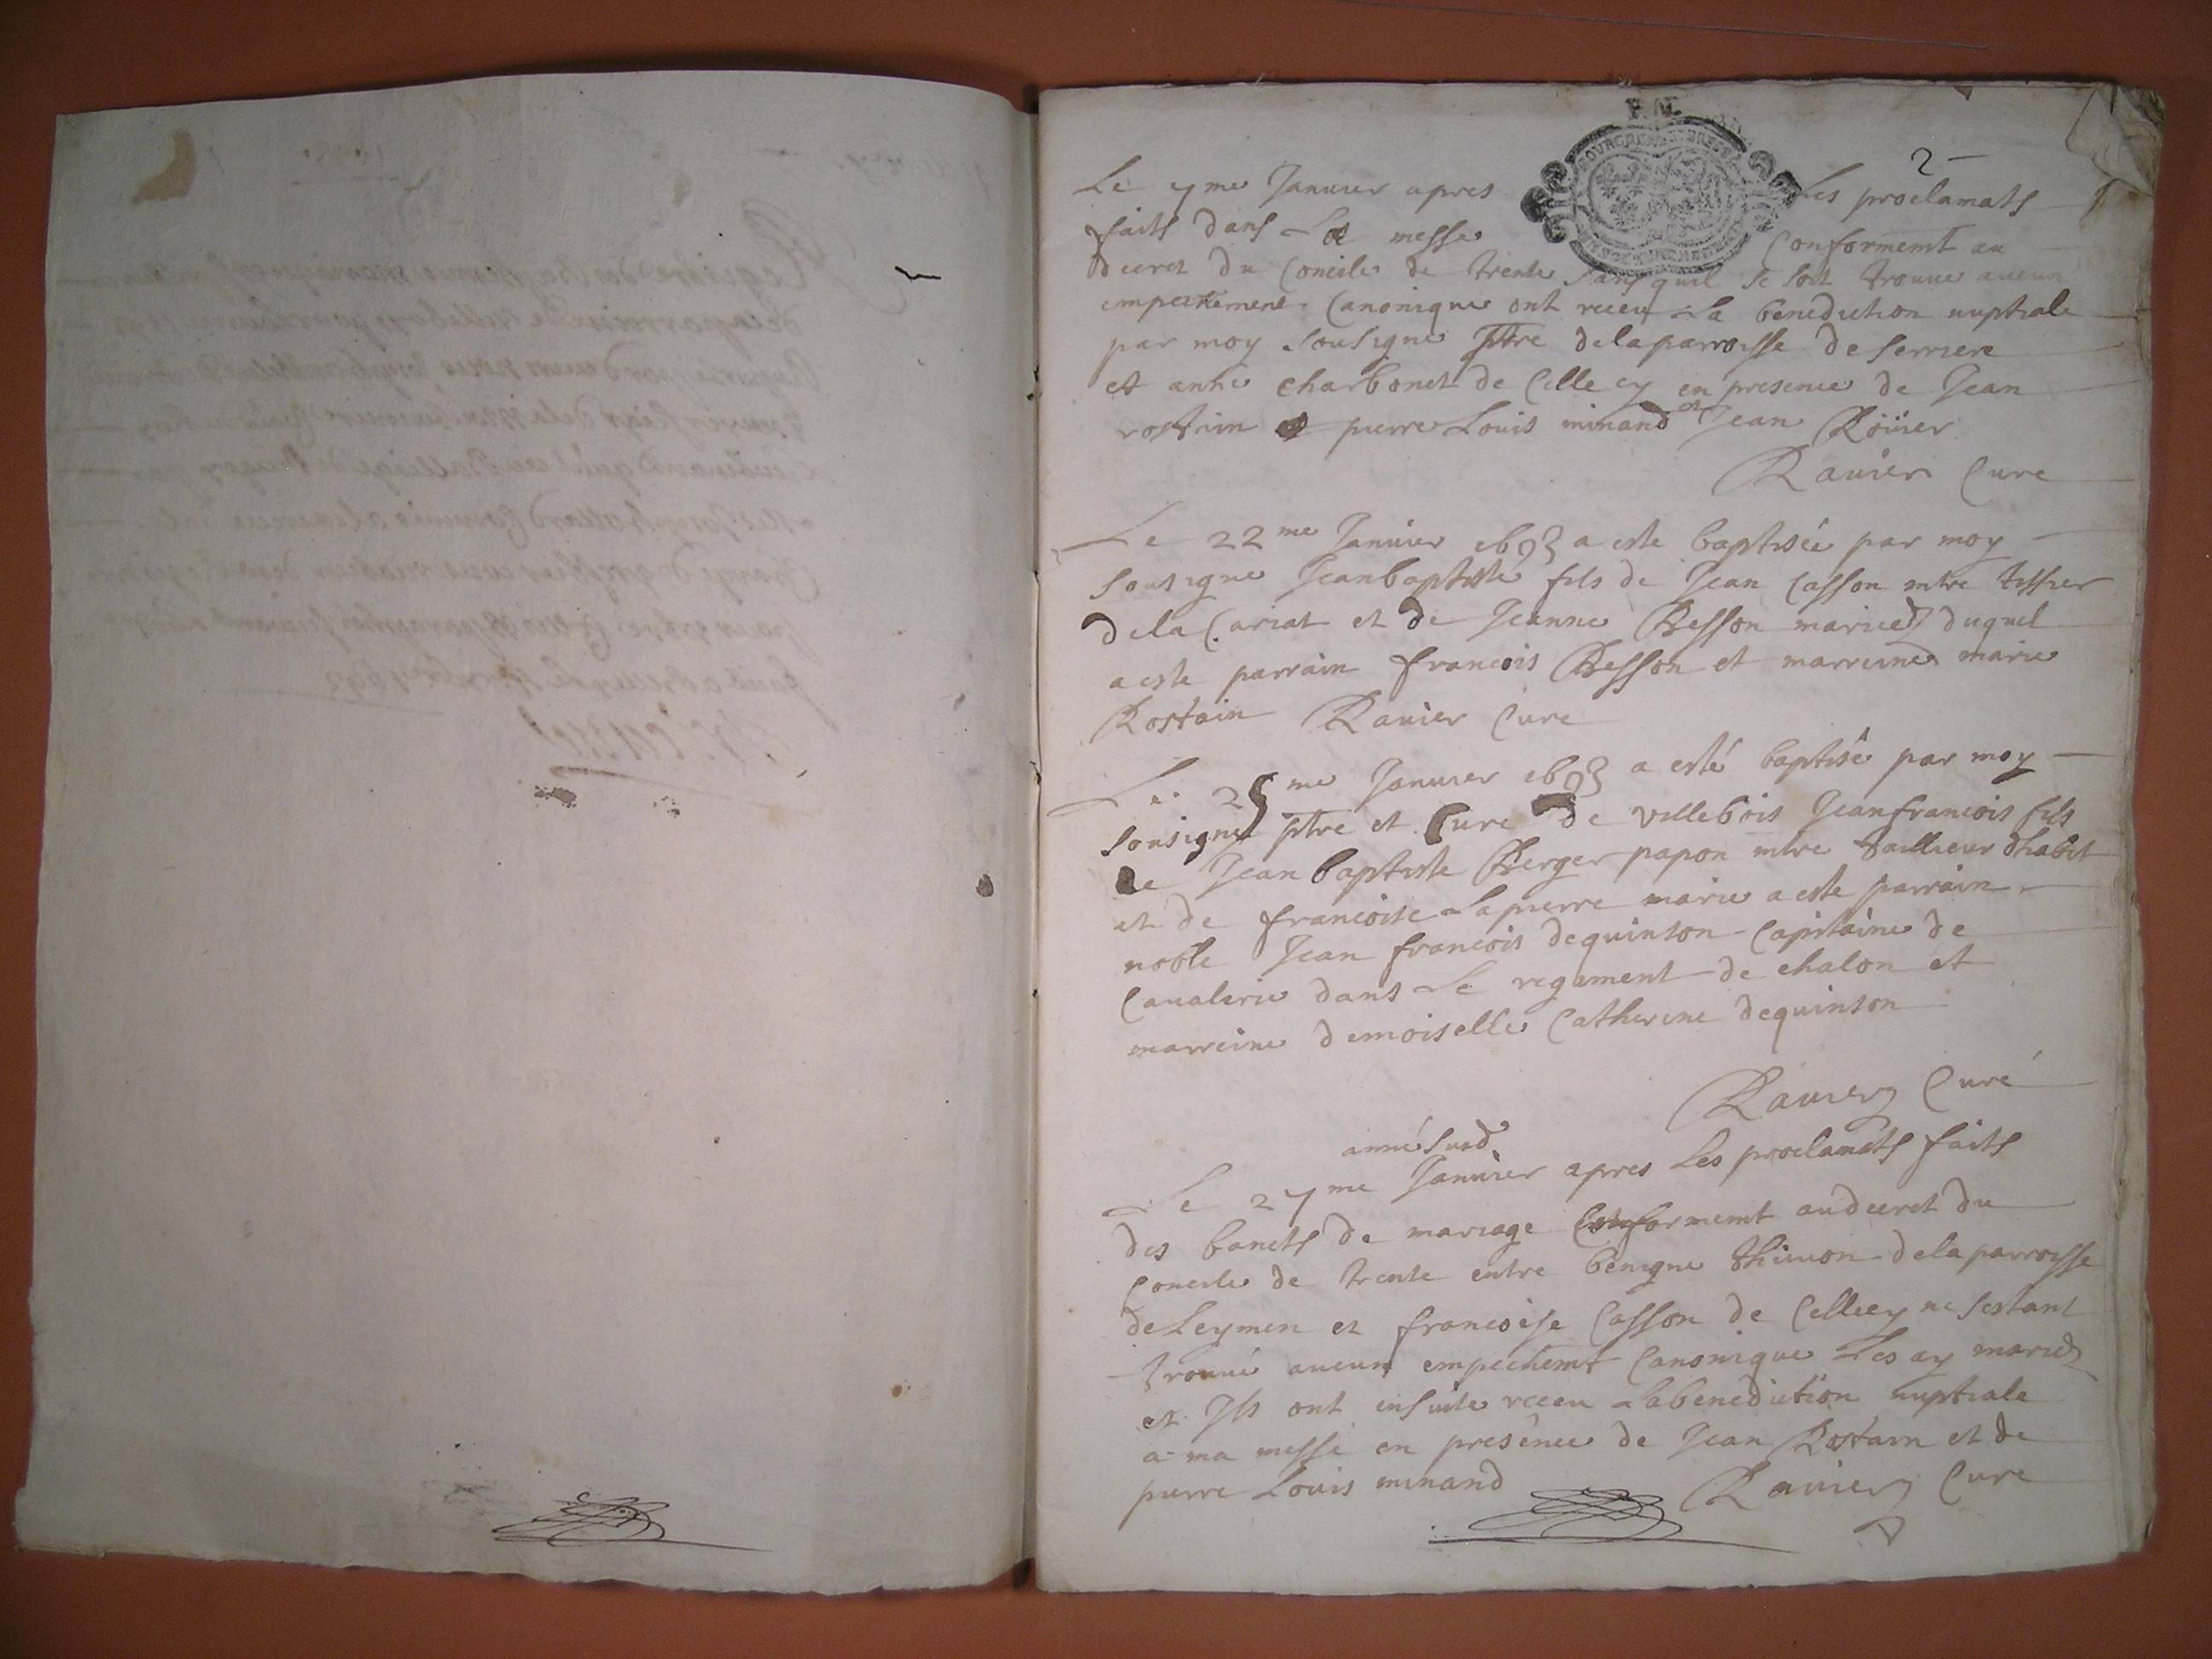 2
Le 7me Janvier apres Les proclamats
faits dans La messe Conformemt au
decret du Concile de trente sans quil se soit trouue aucun
empechement Canonique ont receu La benediction nuptiale
par moy sousigné ptre dela parroisse de serriere
et anne charbonet de Celle cy en presence de Jean
rostain pierre Louis minand et Jean
Rauier Curé
Le 22me Januier a este baptisée par moy
sousigné Jeanbaptiste fils de Jean Casson mtre tissier
dela Cariat et de Jeanne Besson mariez duquel
a este parrain francois Besson et marreine marie
Rostain Rauier Cure
Le 25me Januier a esté baptisé par moy
sousigné ptre et Curé de villebois Jeanfrancois fils
de Jean baptiste Berger papon mtre taillieur dhabit
et de francoise Lapierre marie a este parrain
noble Jean francois dequinson Capitaine de
Caualerie dans Le regiment de chalon et
marreine demoiselle Catherine dequinson
Rauier Curé
anné susd
Le 27me Januier apres Les proclamats faits
des bancts de mariage Conformemt audecret du
Concile de trente entre benigne dela parroisse
de Leymen et francoise Casson de Cellecy ne sestant
trouué aucun empechemt Canonique Les ay mariez
et Ils ont ensuite receu Labenediction nuptiale
a ma messe en presence de Jean Rostain et de
pierre Louis minand Rauier Cure